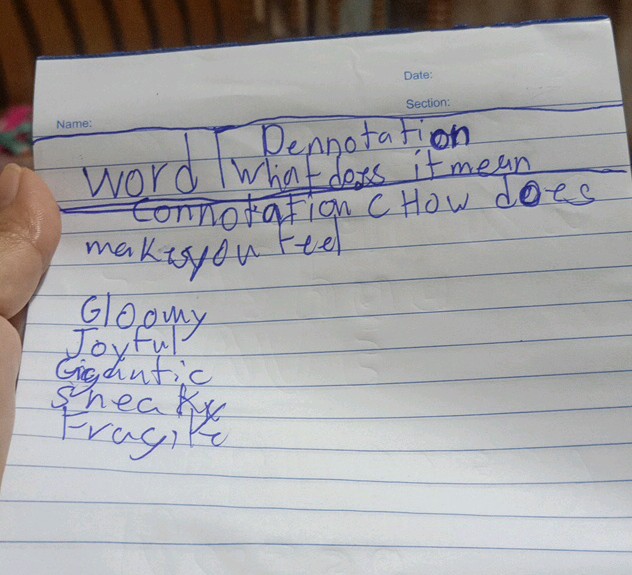 Date:
Section:
Name:
Dennotation
word What does it mean
Connotation C How does
makesyou feel
Gloomy
Joyful
Gigantic
Sneaky
Fragile